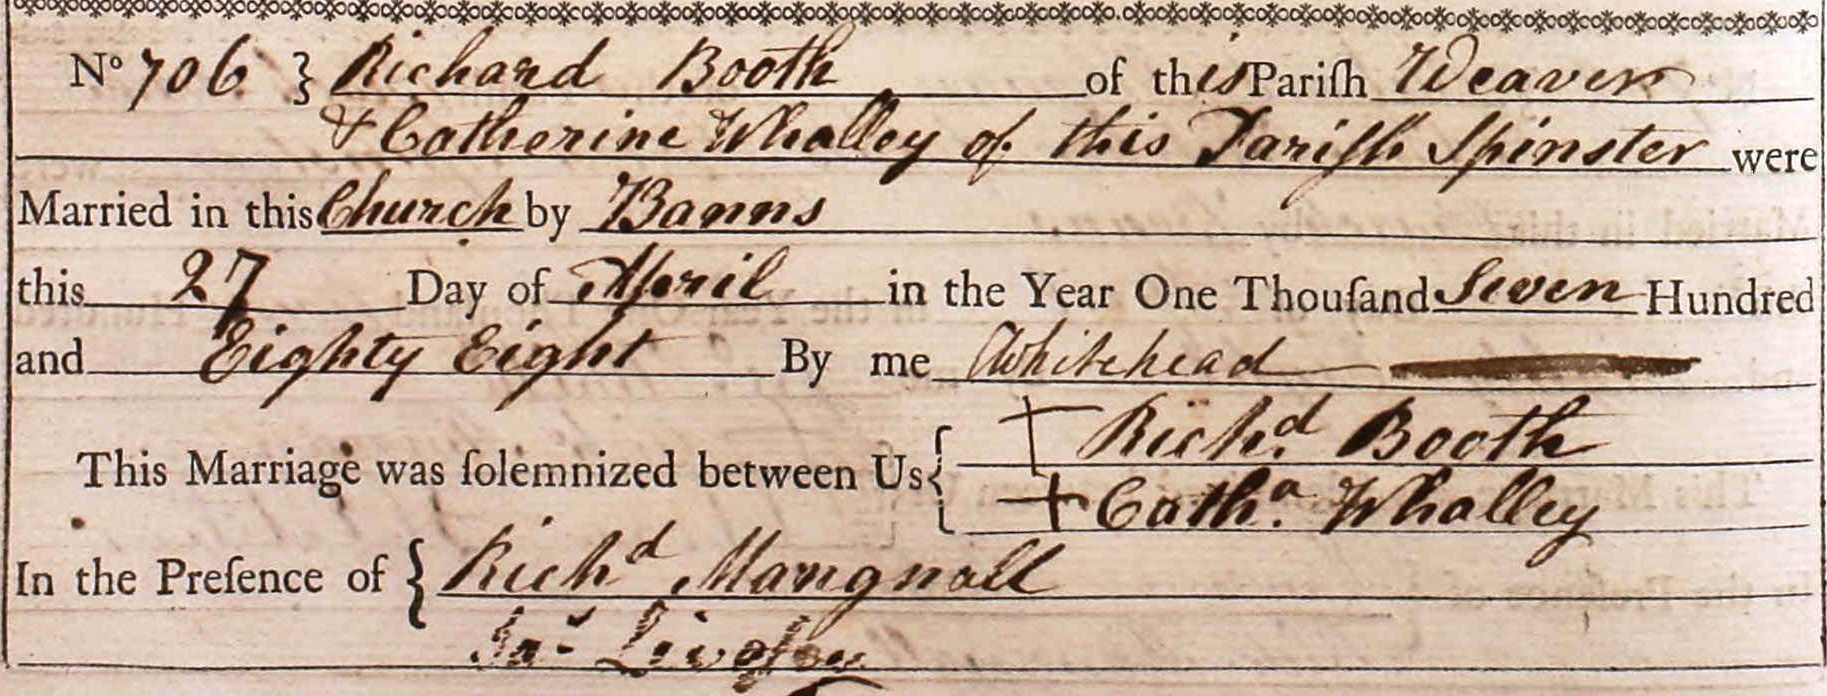 No 706 } Richard Booth of this Pariſh Weaver
& Catherine Whalley of this Pariſh Spinster were
Married in this Church by Banns
this 27 Day of April in the Year One Thouſand Seven Hundred
and Eighty Eight By me Whitehead
This Marriage was ſolemnized between Us { + Richd. Booth
+ Catha. Whalley
In the Preſence of { Richd Mangnall
Jas Liveſey